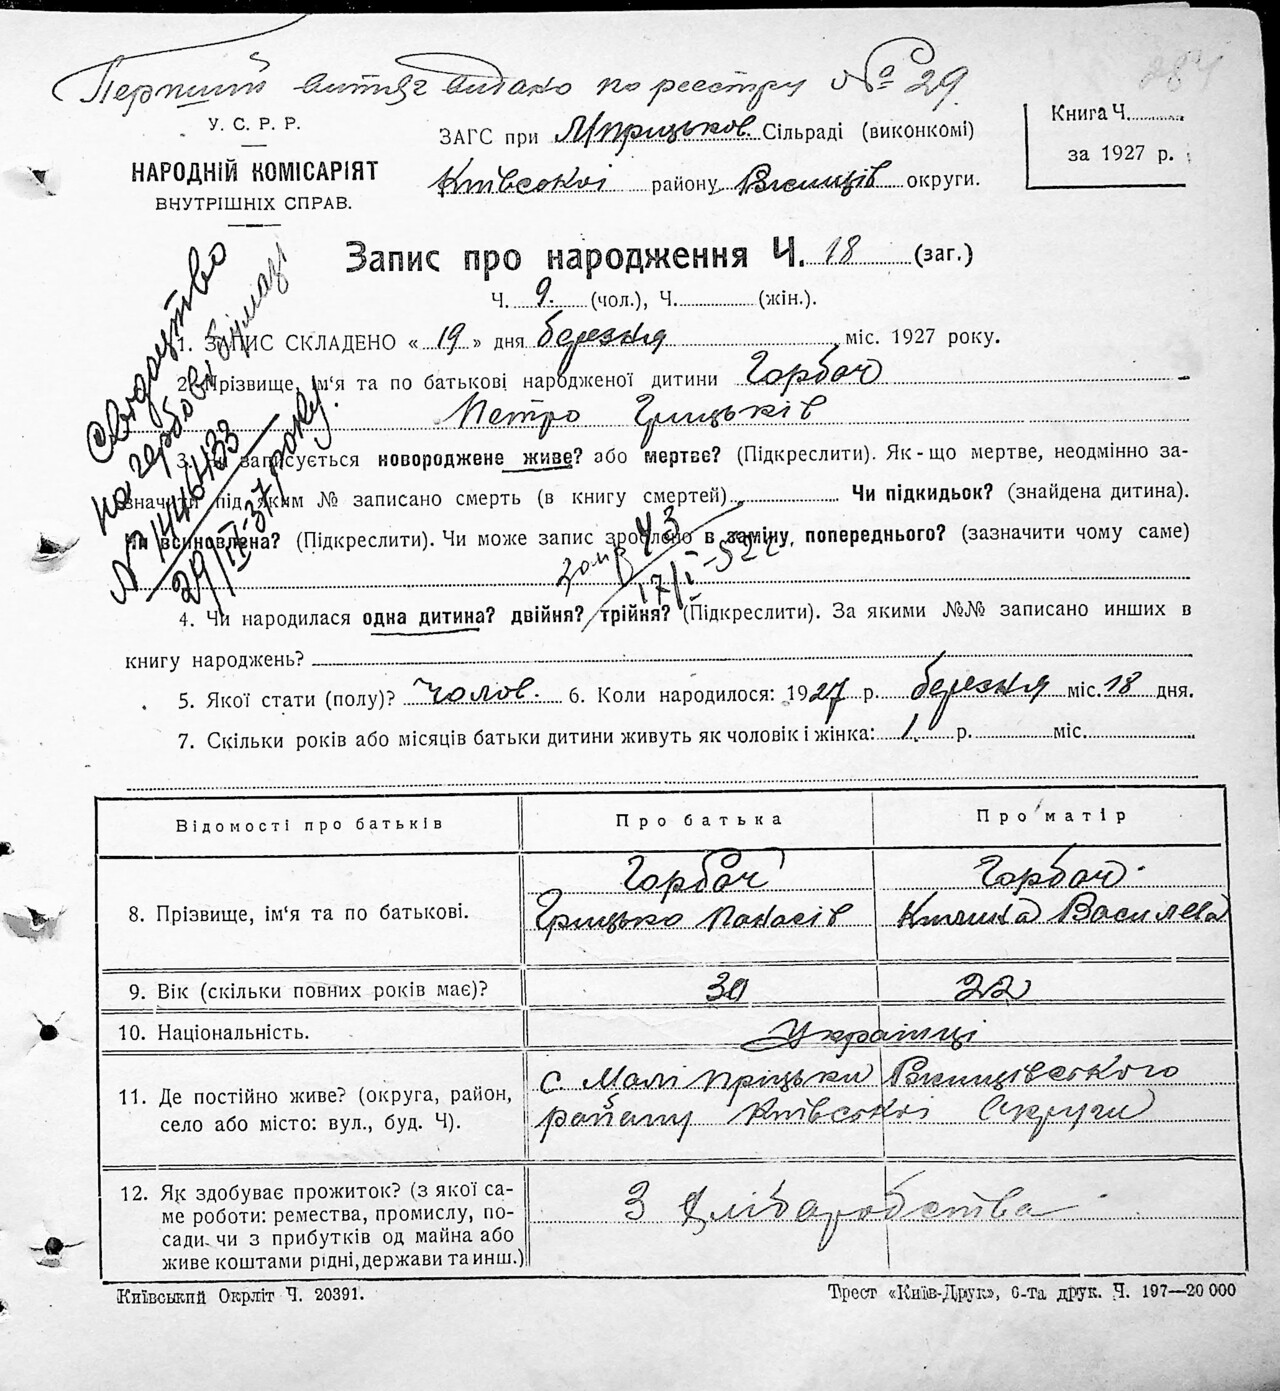 Перший витяг видано по реєстру № 29.
284
У. С. Р. Р.
НАРОДНІЙ КОМІСАРІЯТ
ВНУТРІШНІХ СПРАВ.
ЗАГС при М/прицьков. Сільраді (виконкомі)
Київської району округи.
Книга Ч.
за 1927 р.
Запис про народження Ч. 18 (заг.)
Ч. 9. (чол.), Ч. (жін.).
Свидоцтво
на гербові бумазі
№ 1446433
29/II-37 року.
1. ЗАПИС СКЛАДЕНО « 19 » дня березня міс. 1927 року.
2. Прізвище, ім'я та по батькові народженої дитини Горбач
Петро Грицьків
3. Чи записується новороджене живе? або мертве? (Підкреслити). Як-що мертве, неодмінно за-
значити під яким № записано смерть (в книгу смертей) Чи підкидьок? (знайдена дитина).
Чи всиновлена? (Підкреслити). Чи може запис зроблено в заміну, попереднього? (зазначити чому саме)
43
17/I-52
4. Чи народилася одна дитина? двійня? трійня? (Підкреслити). За якими №№ записано инших в
книгу народжень?
5. Якої стати (полу)? Чолов. 6. Коли народилося: 1927 р. березня міс. 18 дня.
7. Скільки років або місяців батьки дитини живуть як чоловік і жінка: 1. р. міс.
Відомості про батьків Про батька Про матір
8. Прізвище, ім'я та по батькові. Горбач Горбач
Грицько Панасів Килина Василева
9. Вік (скільки повних років має)? 30 22
10. Національність. Українці
11. Де постійно живе? (округа, район,
село або місто: вул., буд. Ч).
с. Малі Пріцьки
району Київської Округи
12. Як здобуває прожиток? (з якої са-
ме роботи: ремества, промислу, по-
сади чи з прибутків од майна або
живе коштами рідні, держави та инш.)
З хліборобства
Київський Окрліт Ч. 20391.
Трест «Київ-Друк», 6-та друк. Ч. 197—20 000